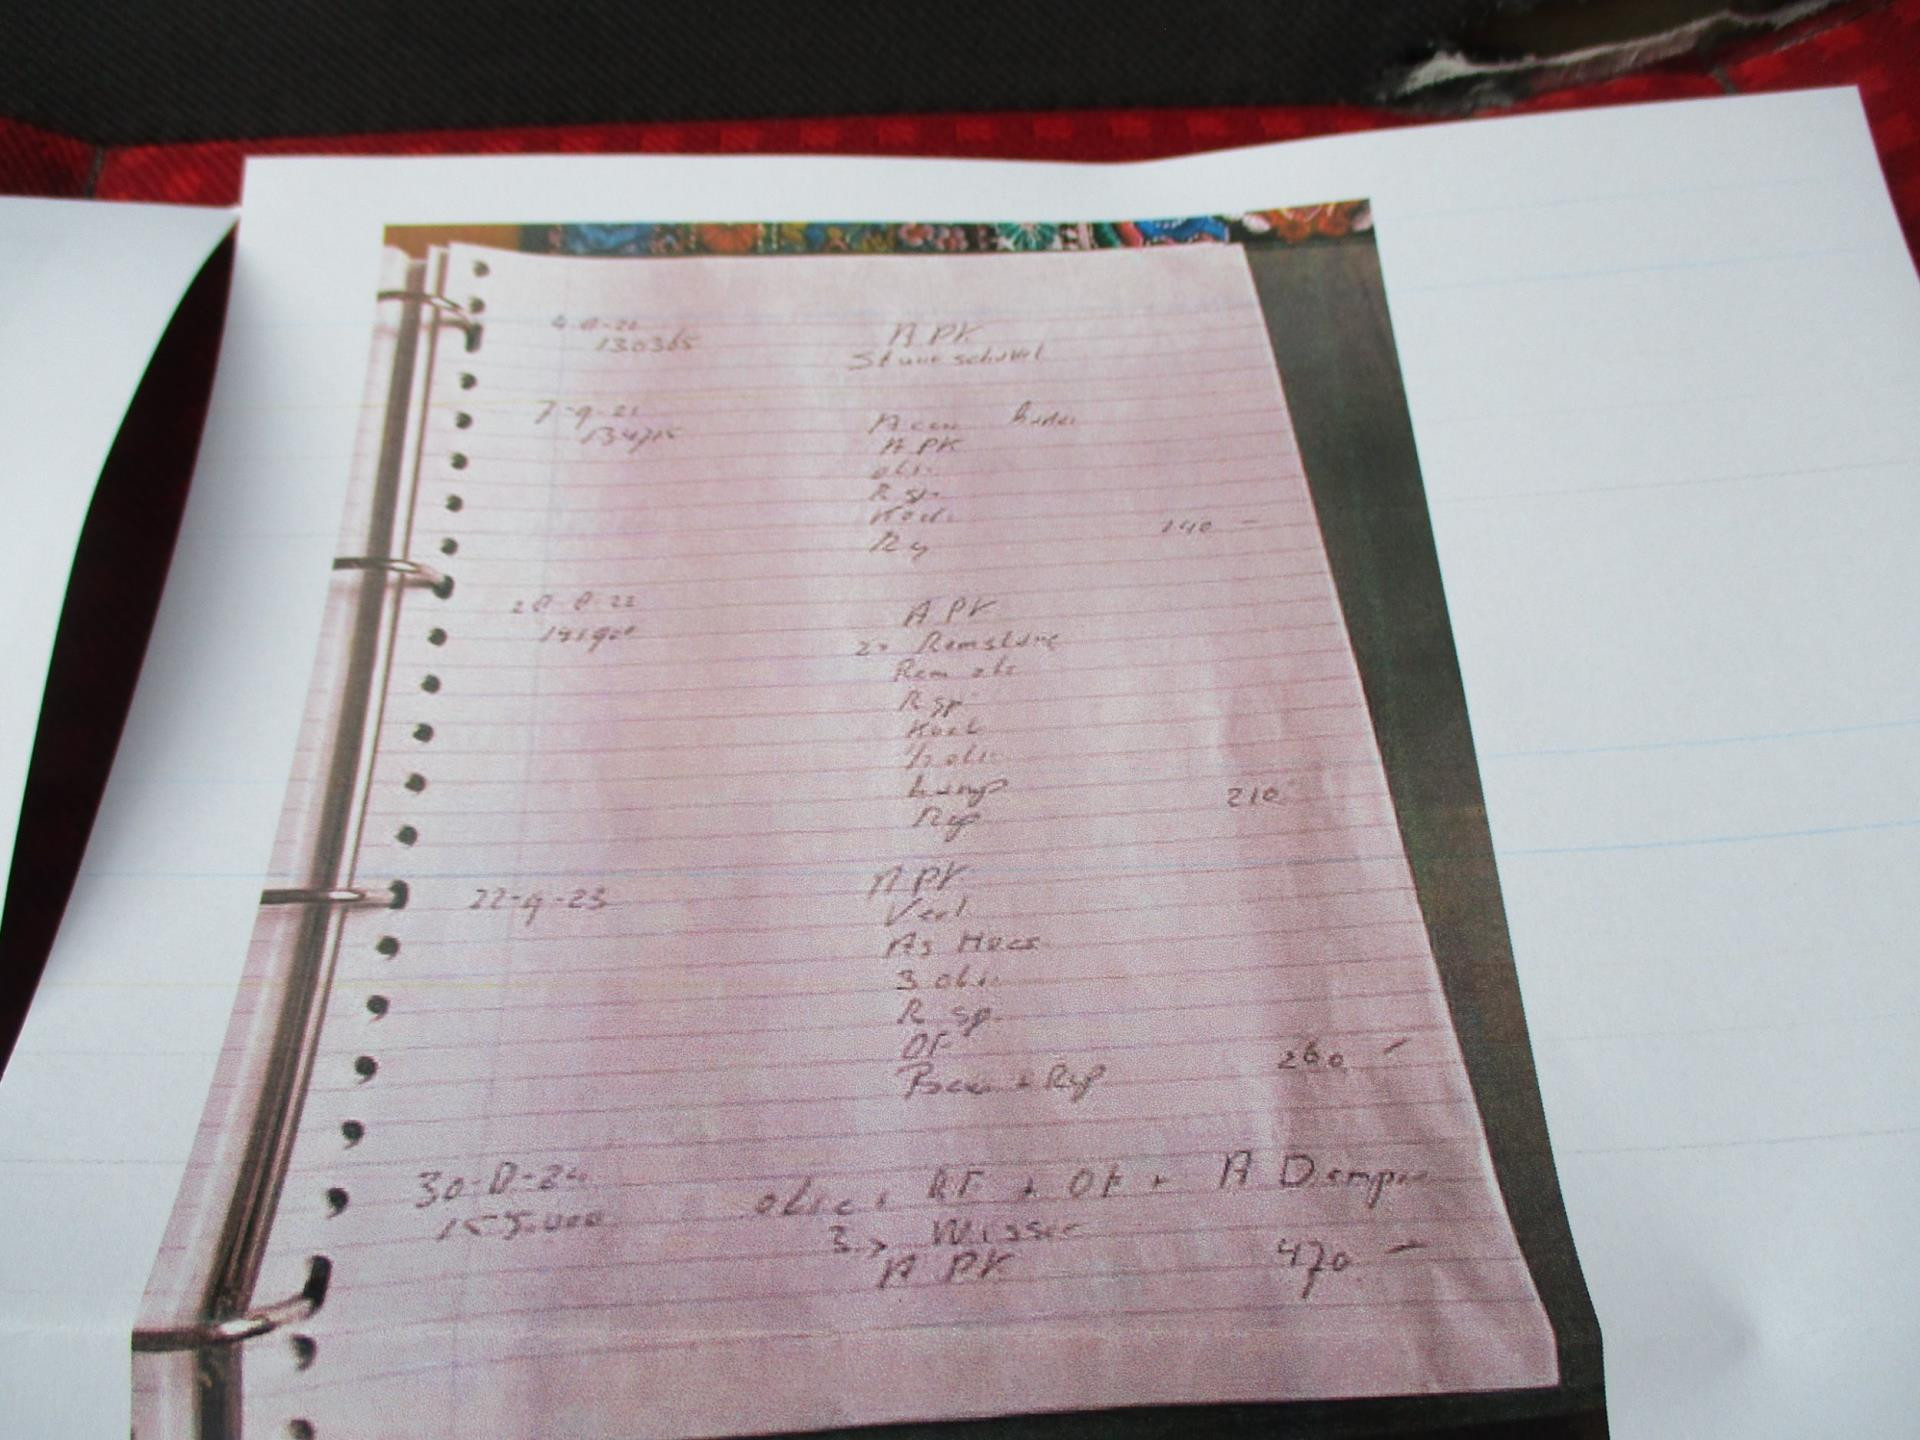 4-8-20
130365 APK
Stuurschakel
7-9-21
134715 Accu
APK
olie
R sp.
Koel.
Ry 140 -
28-8-22
141900 APK
2x Remslang
Rem olie
R sp.
Koel
½ olie
Lamp
Rep 210
22-9-23 APK
Verl.
As Hoes
3 olie
R sp.
OF
+ Rep 260 -
30-8-24
155.000 olie + RF + OF + A Demper
3 x Wisser
APK 470 -